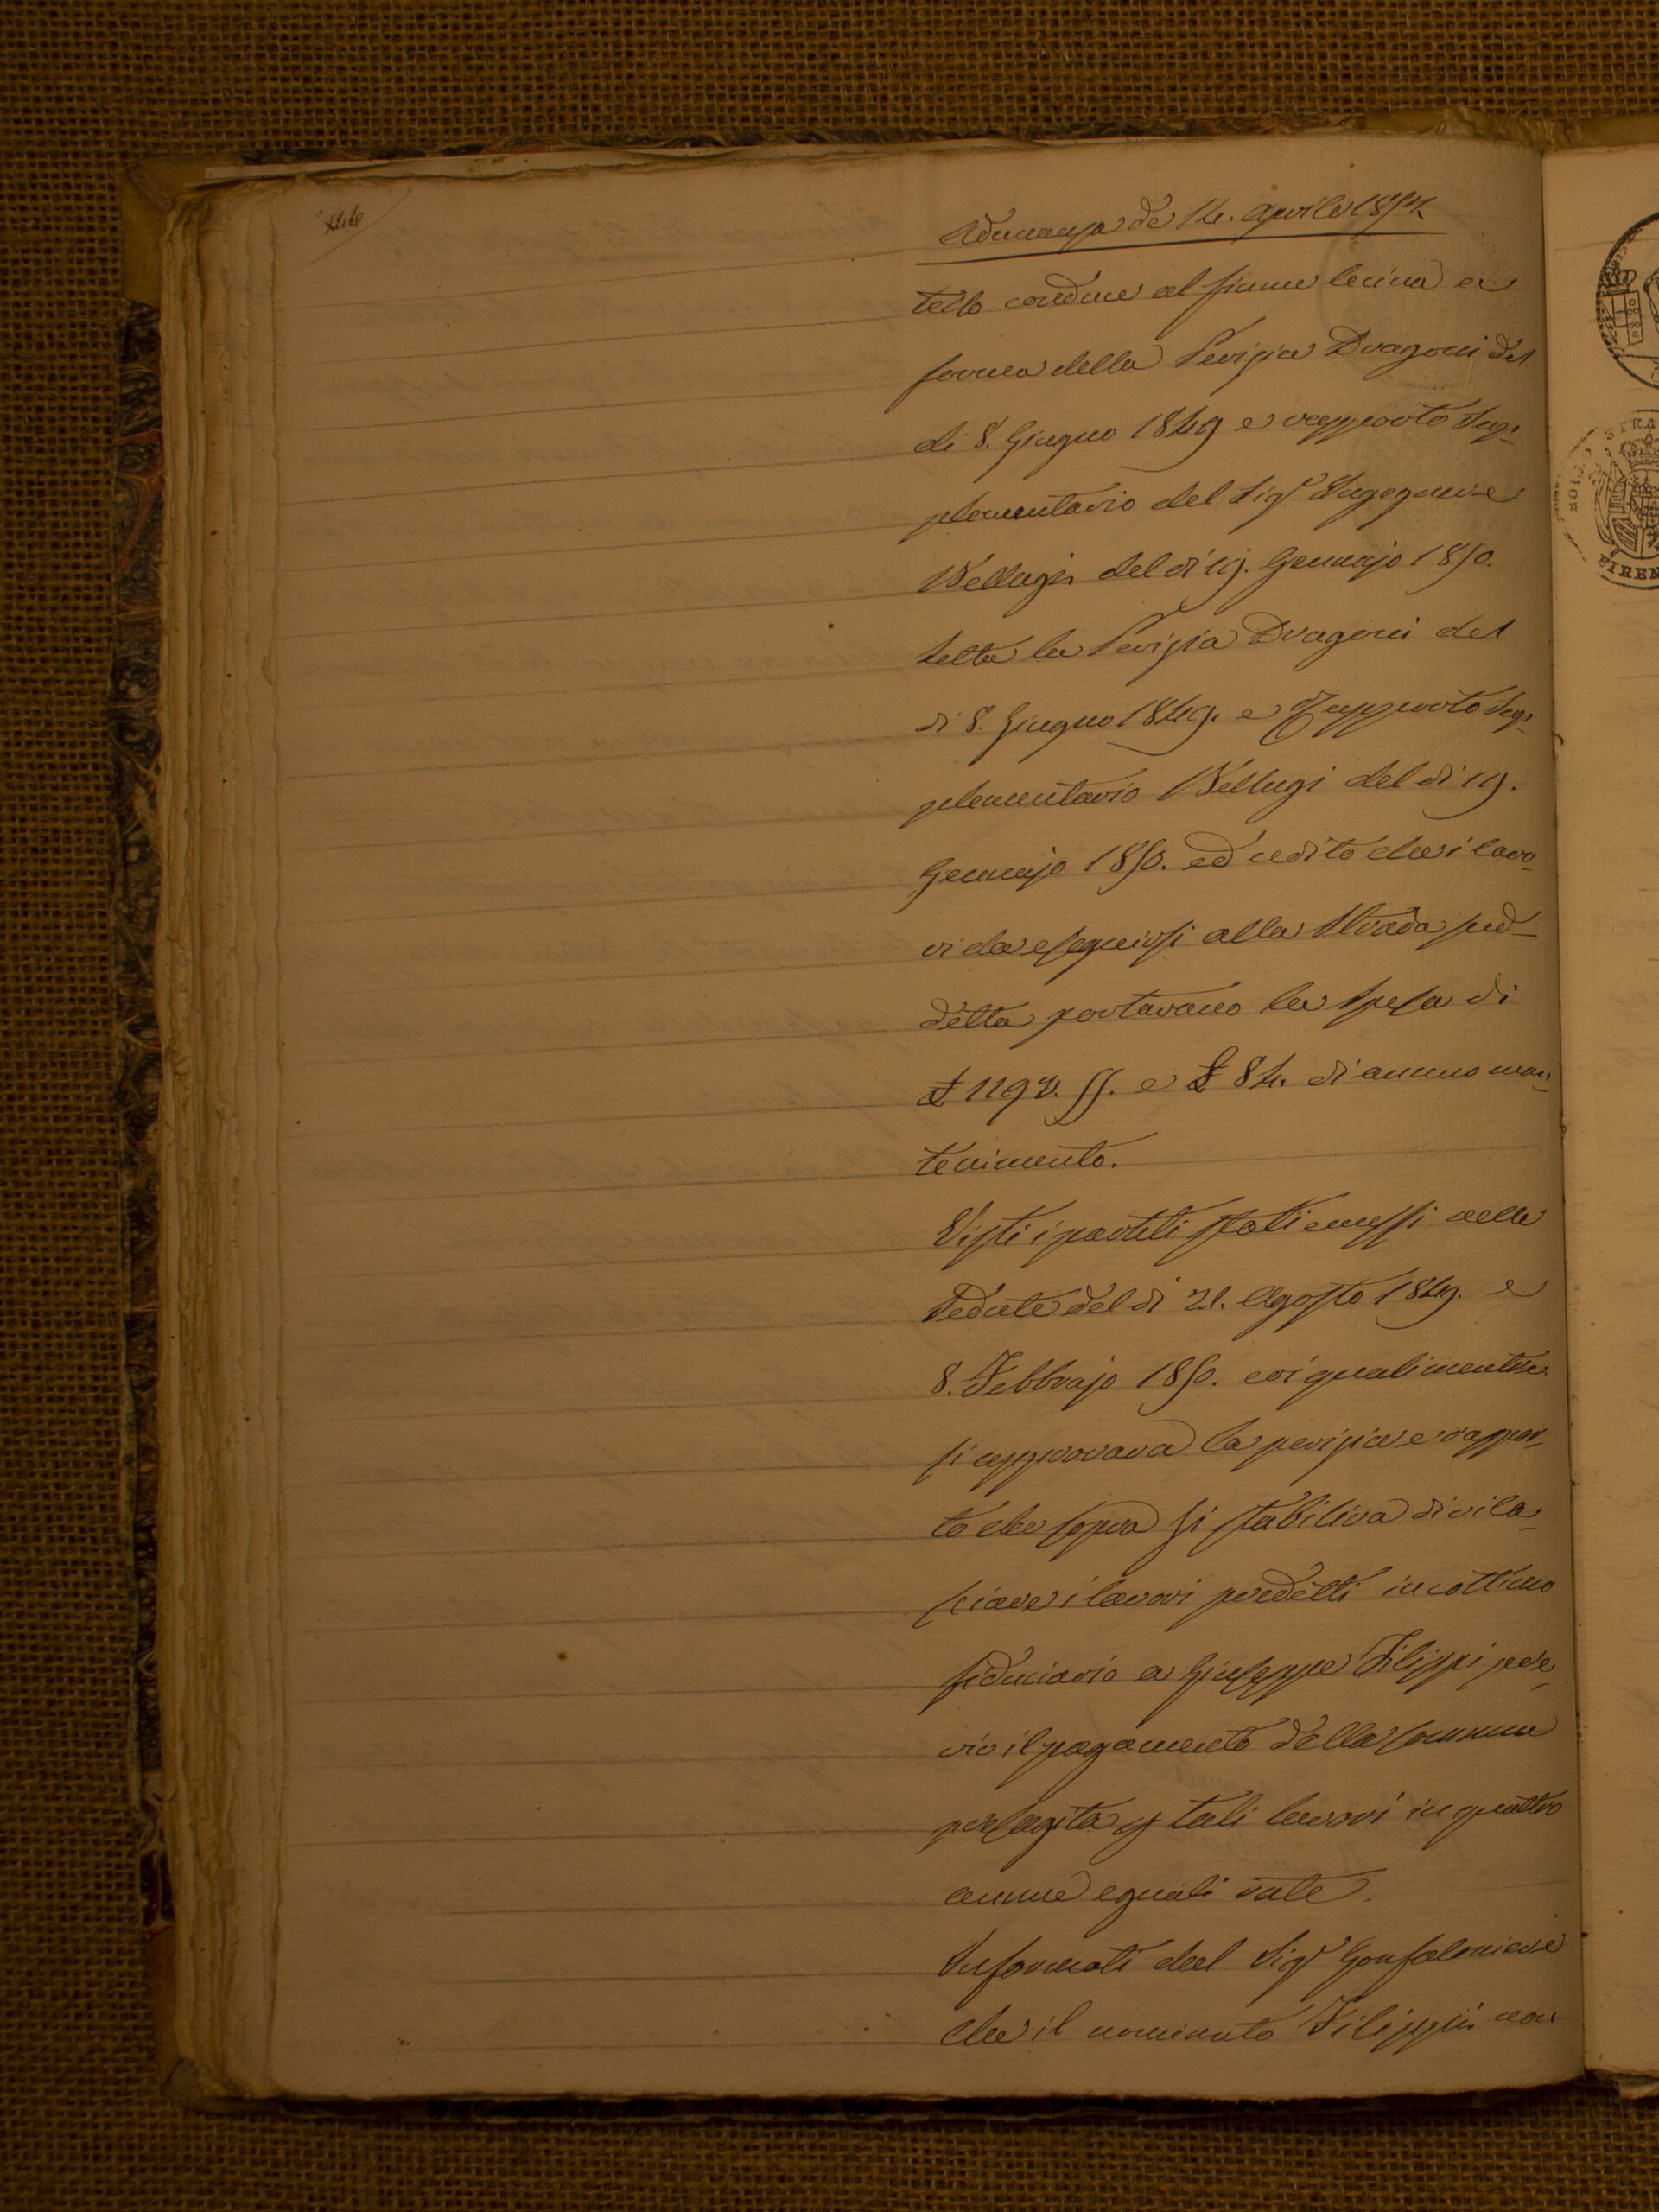 Adunanza de 14. Aprile 1851.
tello conduce al fiume Cecina a
forma della Perizia Dragoni del
dì 8. Giugno 1849 e rapporto sup-
plementario del Sigr Ingegnere
Bellugi del dì 19. Gennajo 1850.
Letta la Perizia Dragoni del
dì 8. Giugno 1849. e Rapporto sup-
plementario Bellugi del dì 19.
Gennajo 1850. ed udito che i lavo-
ri da eseguirsi alla Strada sud-
detta portavano la spesa di
£ 1192. e £ 84. di annuo man-
tenimento.
Visti i partiti stati emessi nelle
Sedute del dì 21. Agosto 1849. e
8. Febbrajo 1850. coi quali mentre
si approvava la perizia e rappor-
to che sopra si stabiliva di rila-
sciare i lavori predetti in cottimo
fiduciario a Giuseppe Filippi pre-
vio il pagamento della somma
presagita p tali lavori in quattro
annue eguali rate.
Informati dal Sigr Gonfaloniere
che il nominato Filippi non
STRA
FIREN